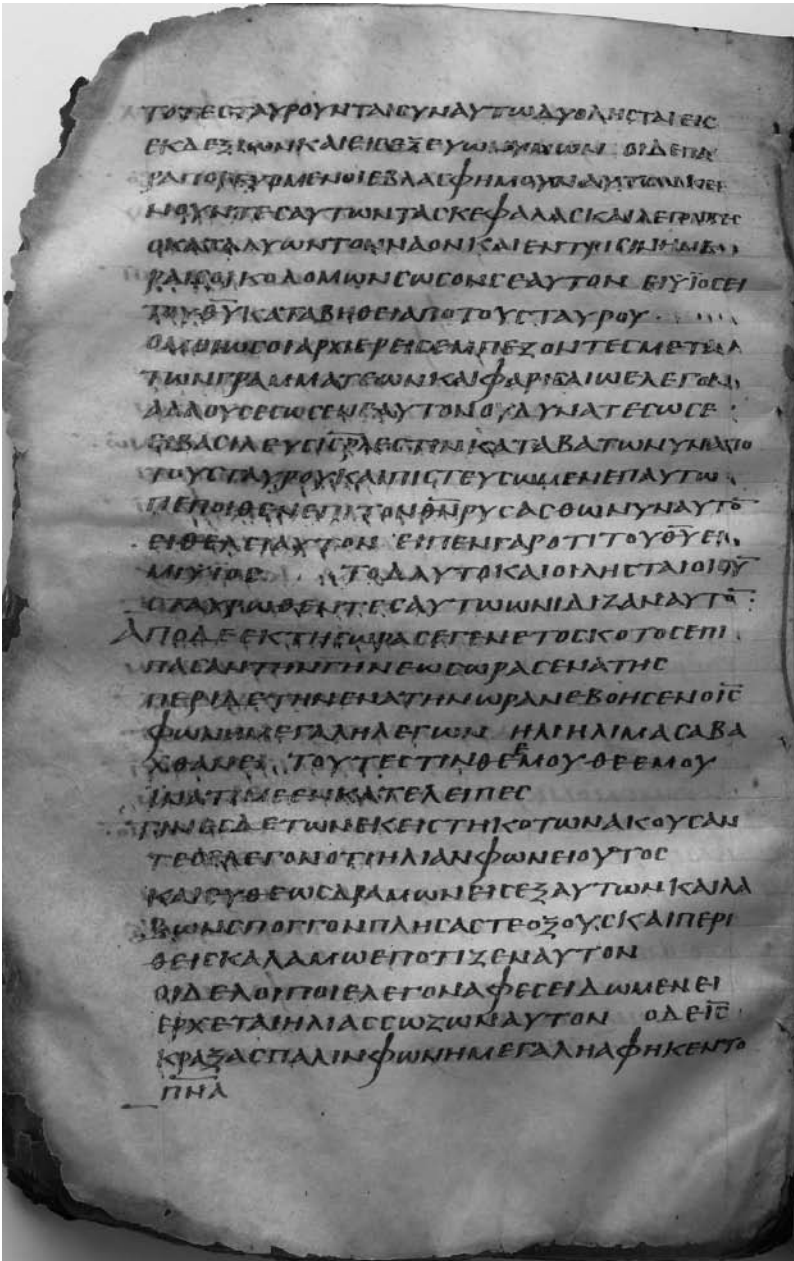 ΤΟΤΕϹΤΑΥΡΟΥΝΤΑΙϹΥΝΑΥΤΩΔΥΟΛΗϹΤΑΙΕΙϹ
ΕΚΔΕΞΙΩΝΚΑΙΕΙϹΕΞΕΥΩΝΥΜΩΝ ΟΙΔΕΠΑ
ΡΑΠΟΡΕΥΟΜΕΝΟΙΕΒΛΑϹΦΗΜΟΥΝΑΥΤΟΝΚΕΙ
ΝΟΥΝΤΕϹΑΥΤΩΝΤΑϹΚΕΦΑΛΑϹΚΑΙΛΕΓΟΝΤΕϹ
ΟΚΑΤΑΛΥΩΝΤΟΝΝΑΟΝΚΑΙΕΝΤΡΙϹΙΝΗΜΕ
ΡΑΙϹΟΙΚΟΔΟΜΩΝϹΩϹΟΝϹΕΑΥΤΟΝ ΕΙΥΪΟϹΕΙ
ΤΟΥΘ̅Υ̅ΚΑΤΑΒΗΘΕΙΑΠΟΤΟΥϹΤΑΥΡΟΥ
ΟΜΟΙΩϹΟΙΑΡΧΙΕΡΕΙϹΕΜΠΕΖΟΝΤΕϹΜΕΤΑ
ΤΩΝΓΡΑΜΜΑΤΕΩΝΚΑΙΦΑΡΙϹΑΙΩΕΛΕΓΟΝ
ΑΛΛΟΥϹΕϹΩϹΕΝΕΑΥΤΟΝΟΥΔΥΝΑΤΕϹΩϹΕ
ΕΙΒΑϹΙΛΕΥϹΙ̅Ϲ̅Ρ̅Λ̅ΕϹΤΙΝΚΑΤΑΒΑΤΩΝΥΝΑΠΟ
ΤΟΥϹΤΑΥΡΟΥΚΑΙΠΙϹΤΕΥϹΩΜΕΝΕΠΑΥΤΩ
ΠΕΠΟΙΘΕΝΕΠΙΤΟΝΘ̅Ν̅ΡΥϹΑϹΘΩΝΥΝΑΥΤΟ̅
ΕΙΘΕΛΕΙΑΥΤΟΝ ΕΙΠΕΝΓΑΡΟΤΙΤΟΥΘ̅Υ̅ΕΙ
ΜΙΥΙΟϹ ΤΟΔΑΥΤΟΚΑΙΟΙΛΗϹΤΑΙΟΙϹΥ̅
ϹΤΑΥΡΩΘΕΝΤΕϹΑΥΤΩΩΝΙΔΙΖΑΝΑΥΤΟ̅
ΑΠΟΔΕΕΚΤΗϹΩΡΑϹΕΓΕΝΕΤΟϹΚΟΤΟϹΕΠΙ
ΠΑϹΑΝΤΗΝΓΗΝΕΩϹΩΡΑϹΕΝΑΤΗϹ
ΠΕΡΙΔΕΤΗΝΕΝΑΤΗΝΩΡΑΝΕΒΟΗϹΕΝΟΙ̅Ϲ̅
ΦΩΝΗΜΕΓΑΛΗΛΕΓΩΝ ΗΛΙΗΛΙΜΑϹΑΒΑ
ΧΘΑΝΕΙ ΤΟΥΤΕϹΤΙΝΘΕΕΜΟΥΘΕΕΜΟΥ
ΙΝΑΤΙΜΕΕΝΚΑΤΕΛΕΙΠΕϹ
ΤΙΝΕϹΔΕΤΩΝΕΚΕΙϹΤΗΚΟΤΩΝΑΚΟΥϹΑΝ
ΤΕϹΕΛΕΓΟΝΟΤΙΗΛΙΑΝΦΩΝΕΙΟΥΤΟϹ
ΚΑΙΕΥΘΕΩϹΔΡΑΜΩΝΕΙϹΕΞΑΥΤΩΝΚΑΙΛΑ
ΒΩΝϹΠΟΓΓΟΝΠΛΗϹΑϹΤΕΟΞΟΥϹΚΑΙΠΕΡΙ
ΘΕΙϹΚΑΛΑΜΩΕΠΟΤΙΖΕΝΑΥΤΟΝ
ΟΙΔΕΛΟΙΠΟΙΕΛΕΓΟΝΑΦΕϹΕΙΔΩΜΕΝΕΙ
ΕΡΧΕΤΑΙΗΛΙΑϹϹΩΖΩΝΑΥΤΟΝ ΟΔΕΙ̅Ϲ̅
ΚΡΑΞΑϹΠΑΛΙΝΦΩΝΗΜΕΓΑΛΗΑΦΗΚΕΝΤΟ
Π̅Ν̅Α̅